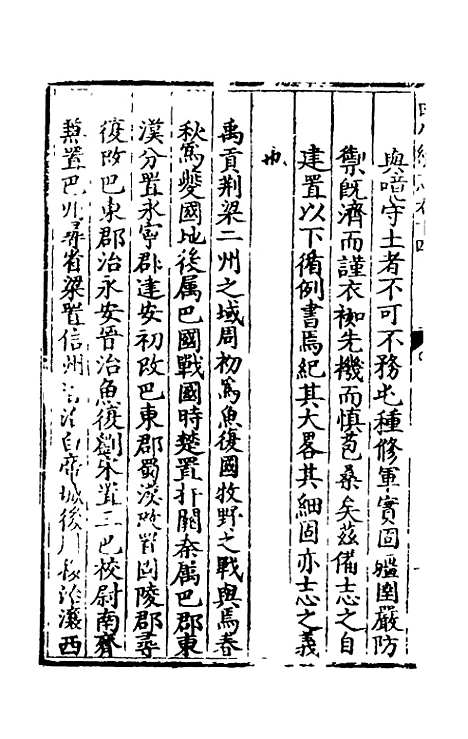 與噫守土者不可不務也種修軍實固嚴防
禦既濟而謹衣袽先機而慎苞桑矣茲備志之自
建置以下循例書焉紀其大畧其細固亦志之義
也
禹貢荆梁二州之域周初為魚復國牧野之戰與焉春
秋為夔國地後属巴國戰國時楚置扞關秦属巴郡東
漢分置永寧郡建安初改巴東郡蜀漢改置固陵郡尋
復改巴東郡治永安晉治魚復劉宋置三巴校尉南齊
兼置巴州尋省梁置信州治白帝城後周移治瀼西